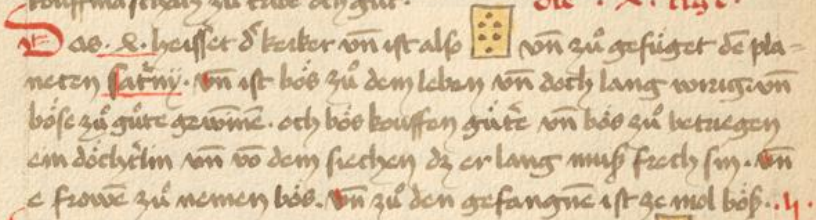 Das .x. heisset d' kerker vn̄ ist also vn̄ zů gefüget dē pla-
neten satˀnÿ. vn̄ ist bös zů dem leben vn̄ doch lang wirig. vn̄
böse zů gůte gewīnē. och bös kouffen gůtˀ vn̄ bös zů betriegen
ein döchtˀlin vn̄ vō dem siechen dz er lang muß siech sin. vn̄
e frowē zů nemen bös. vn̄ zů den gefangnē ist ze mol böß.